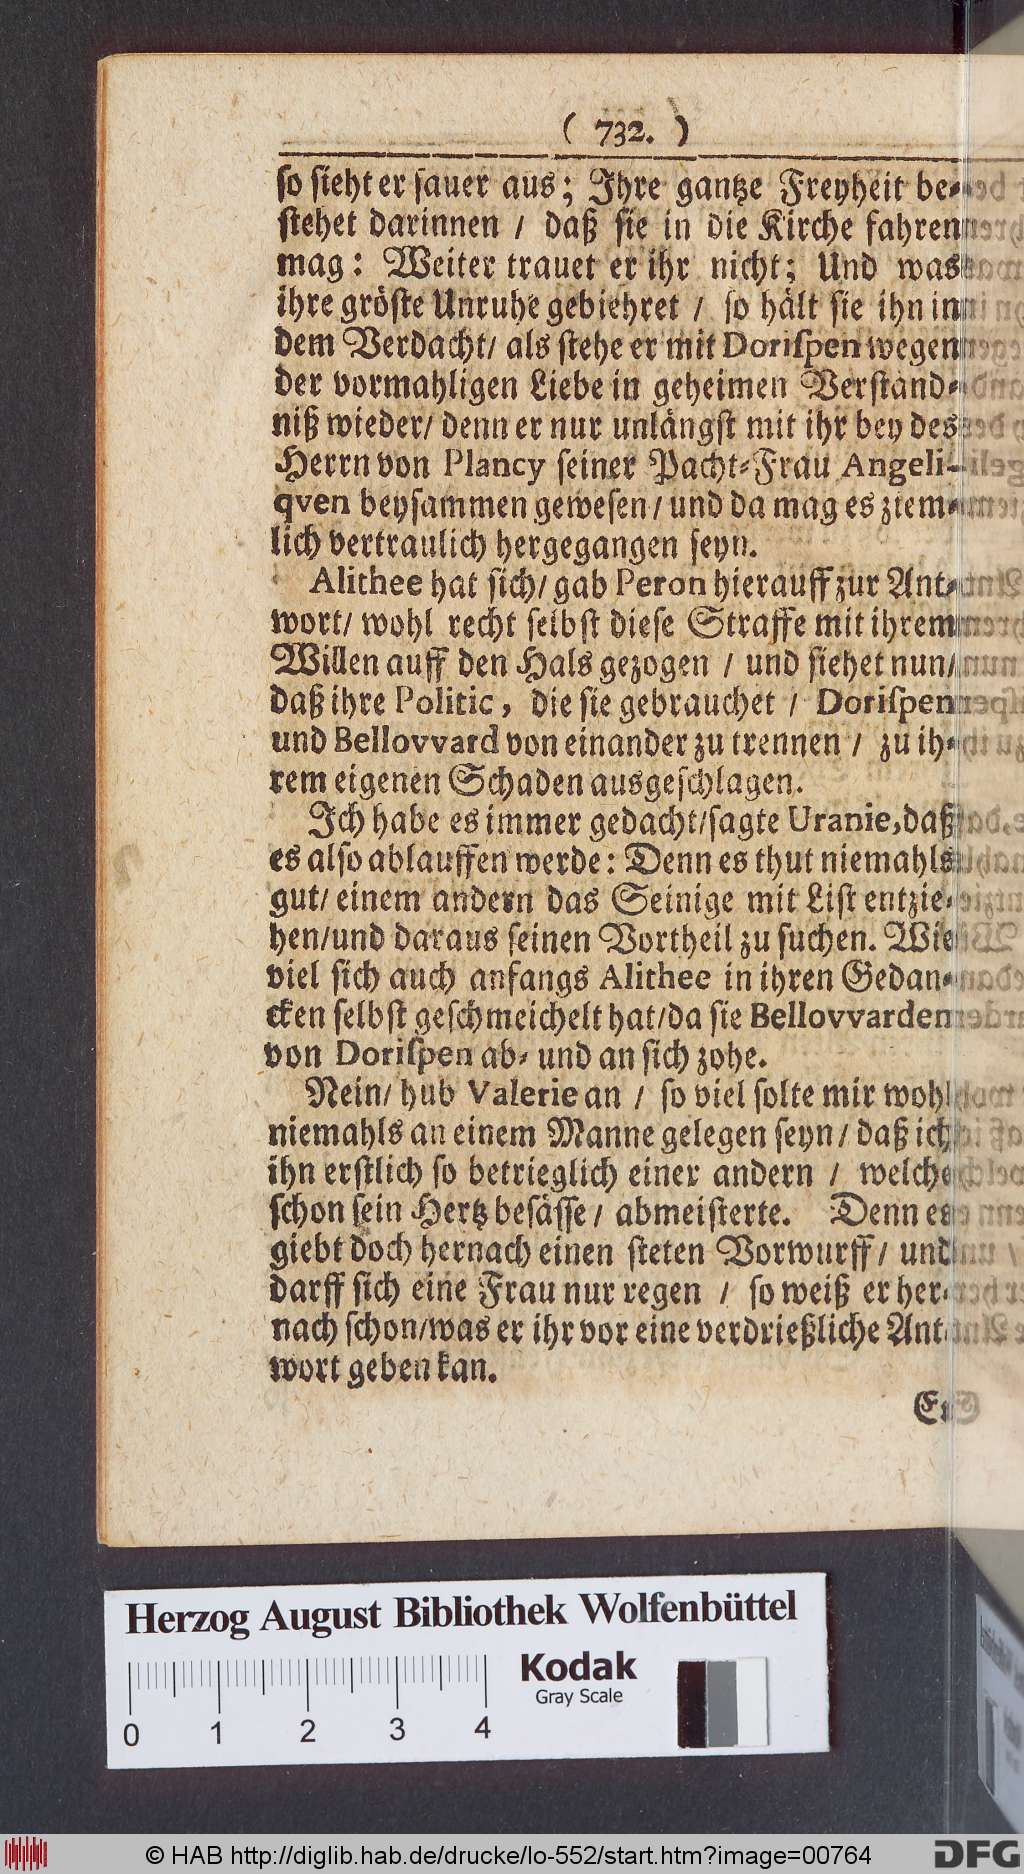 ( 732. )
so sieht er sauer aus; Ihre gantze Freyheit be-
stehet darinnen / daß sie in die Kirche fahren
mag: Weiter trauet er ihr nicht; Und was
ihre gröste Unruhe gebiehret / so hält sie ihn in
dem Verdacht/ als stehe er mit Dorispen wegen
der vormahligen Liebe in geheimen Verständ-
niß wieder/ denn er nur unlängst mit ihr bey des
Herrn von Plancy seiner Pacht-Frau Angeli-
qven beysammen gewesen / und da mag es ziem-
lich vertraulich hergegangen seyn.
Alithee hat sich/ gab Peron hierauff zur Ant-
wort/ wohl recht selbst diese Straffe mit ihrem
Willen auff den Hals gezogen / und siehet nun/
daß ihre Politic, die sie gebrauchet / Dorispen
und Bellovvard von einander zu trennen / zu ih-
rem eigenen Schaden ausgeschlagen.
Ich habe es immer gedacht/sagte Uranie, daß
es also ablauffen werde: Denn es thut niemahls
gut/ einem andern das Seinige mit List entzie-
hen/und daraus seinen Vortheil zu suchen. Wie
viel sich auch anfangs Alithee in ihren Gedan-
cken selbst geschmeichelt hat/da sie Bellovvarden
von Dorispen ab- und an sich zohe.
Nein/ hub Valerie an / so viel solte mir wohl
niemahls an einem Manne gelegen seyn / daß ich
ihn erstlich so betrieglich einer andern / welche
schon sein Hertz besässe / abmeisterte. Denn es
giebt doch hernach einen steten Vorwurff / und
darff sich eine Frau nur regen / so weiß er her-
nach schon/was er ihr vor eine verdrießliche Ant-
wort geben kan.
Herzog August Bibliothek Wolfenbüttel
Kodak
Gray Scale
0 1 2 3 4
© HAB http://diglib.hab.de/drucke/lo-552/start.htm?image=00764
DFG